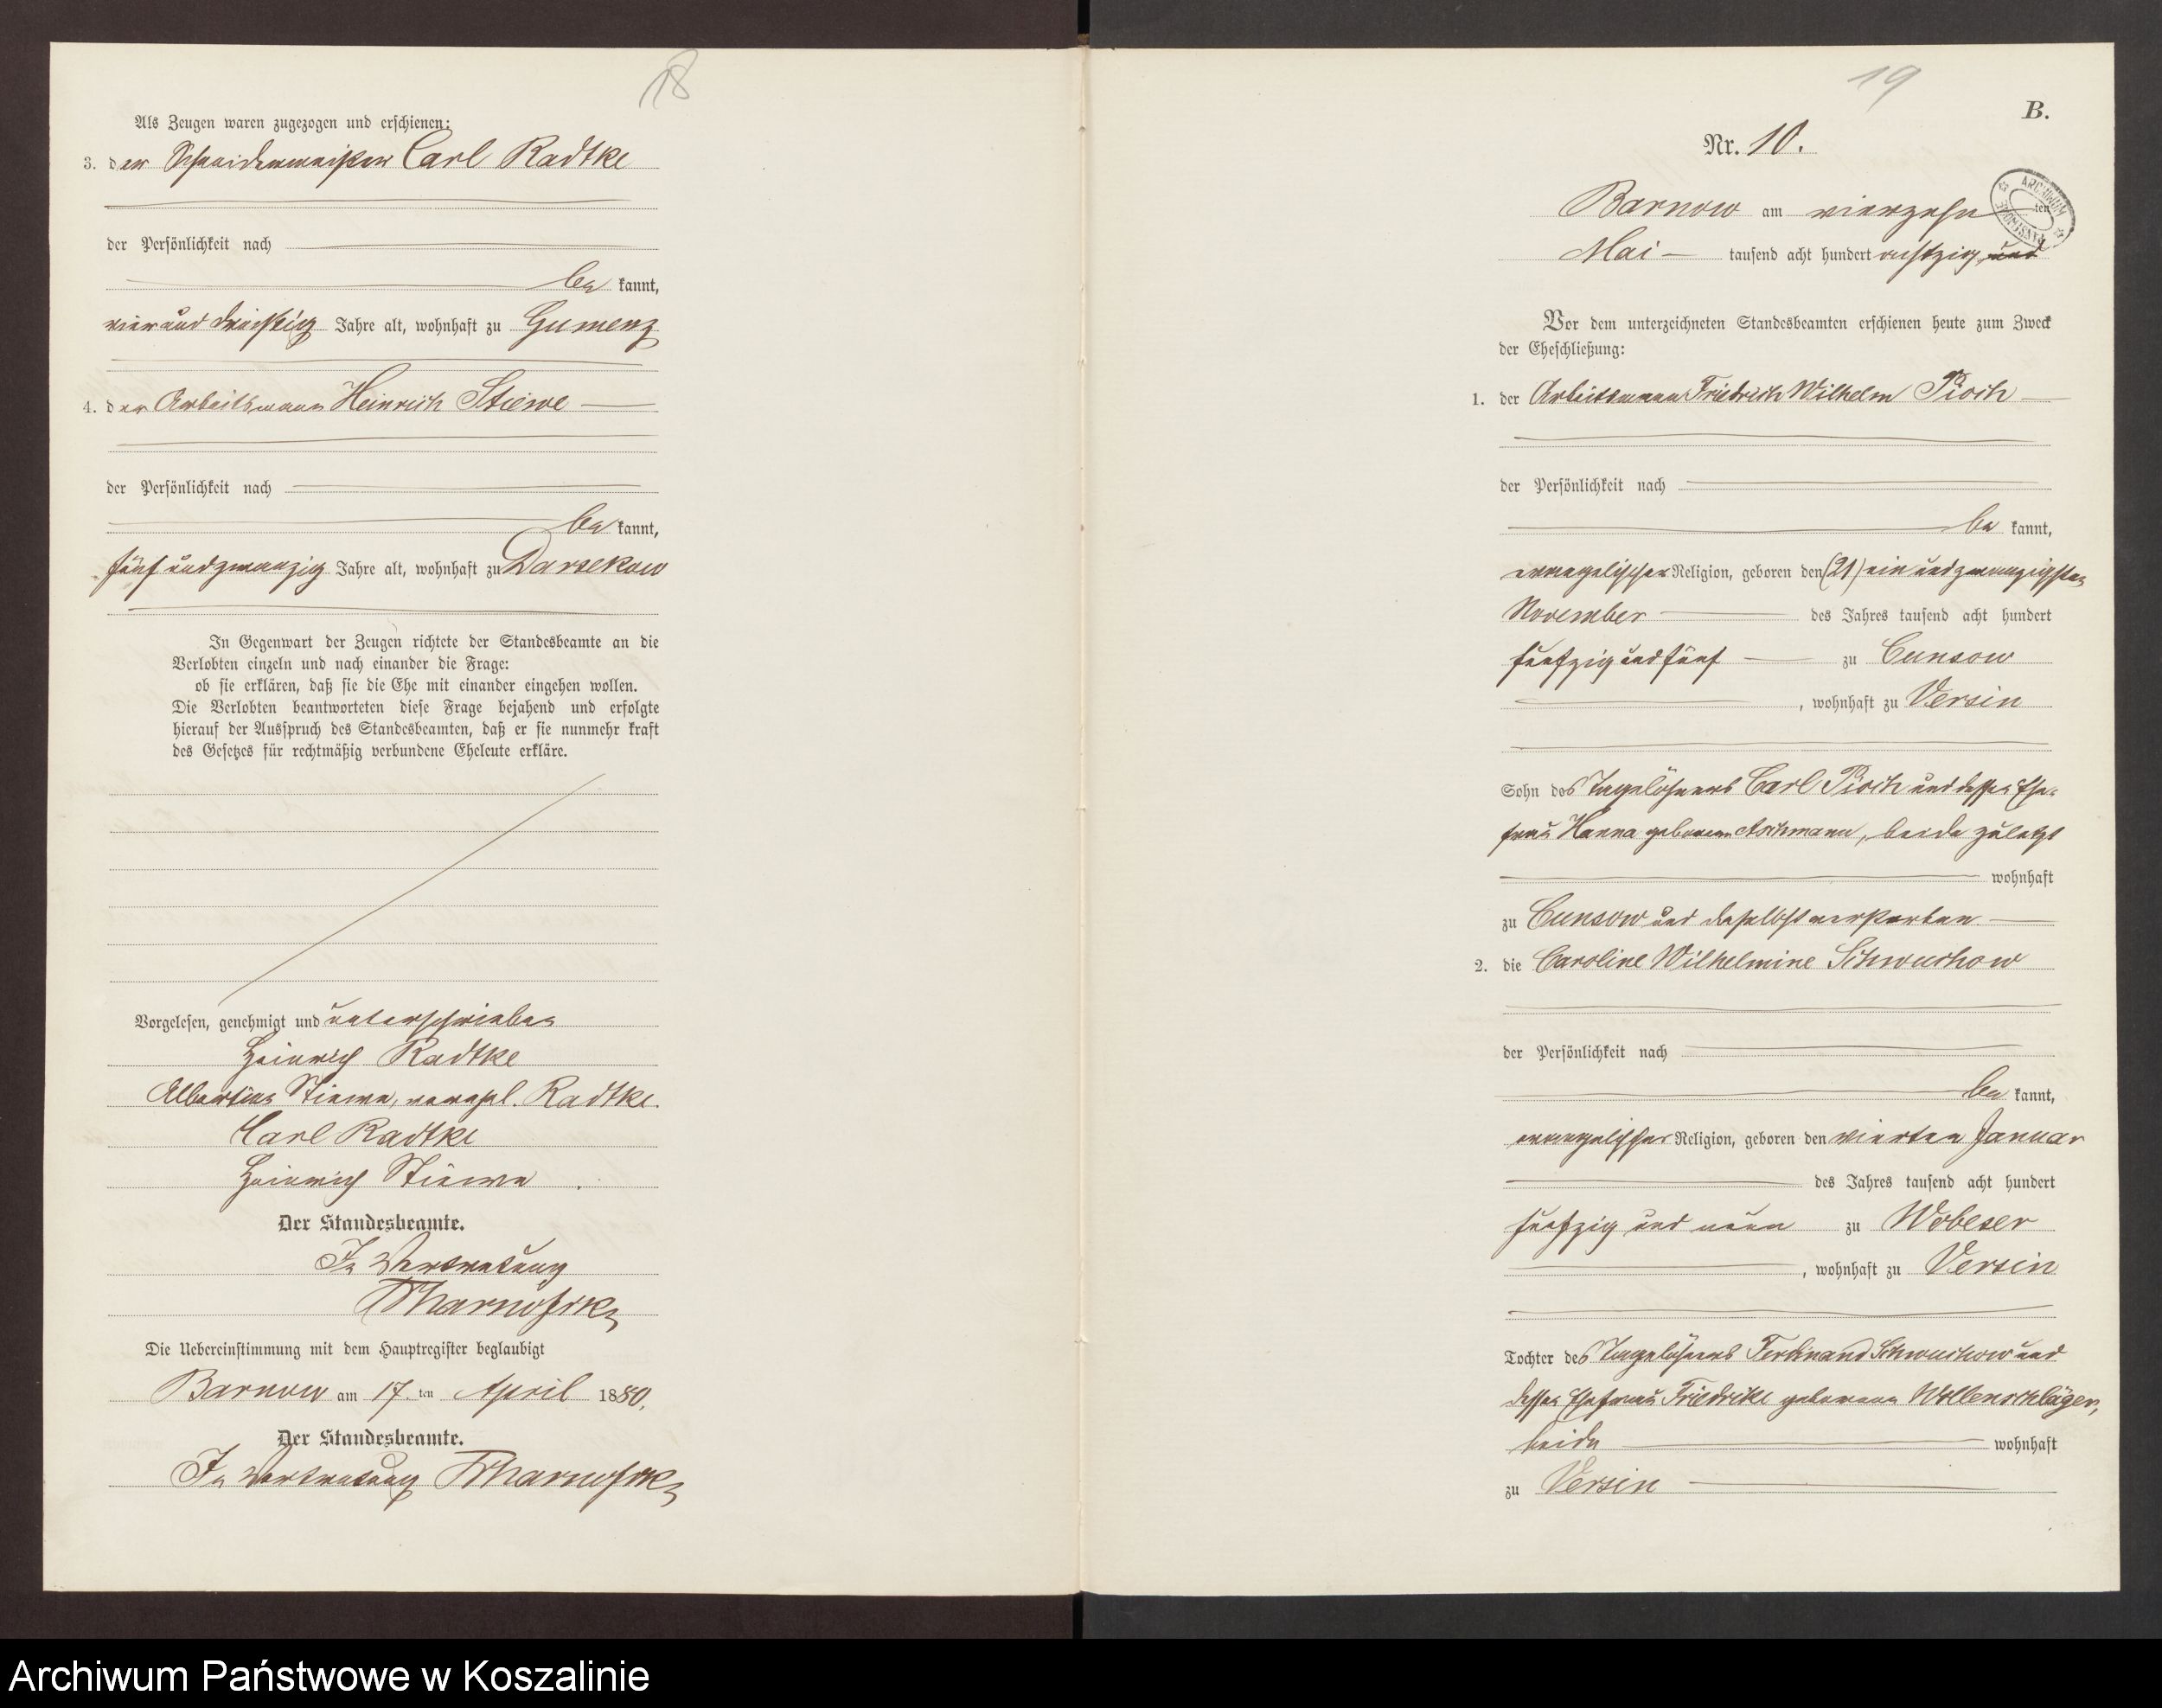 18
Als Zeugen waren zugezogen und erschienen:
3. der Schneidermeister Carl Radtke
der Persönlichkeit nach
be kannt,
vierunddreißig Jahre alt, wohnhaft zu Gumenz
4. der Arbeitsmann Heinrich Stiewe
der Persönlichkeit nach
be kannt,
fünfundzwanzig Jahre alt, wohnhaft zu Darsekow
In Gegenwart der Zeugen richtete der Standesbeamte an die
Verlobten einzeln und nach einander die Frage:
ob sie erklären, daß sie die Ehe mit einander eingehen wollen.
Die Verlobten beantworteten diese Frage bejahend und erfolgte
hierauf der Ausspruch des Standesbeamten, daß er sie nunmehr kraft
des Gesetzes für rechtmäßig verbundene Eheleute erkläre.
Vorgelesen, genehmigt und unterschrieben
Heinrich Radtke
Albertine Stiewe, verehel. Radtke.
Carl Radtke
Heinrich Stiewe.
Der Standesbeamte.
In Vertretung
Die Uebereinstimmung mit dem Hauptregister beglaubigt
Barnow am 17. ten April 1880.
Der Standesbeamte.
In Vertretung
19
B.
Nr. 10.
Barnow am vierzehn ten
Mai tausend acht hundert achtzig und
ARCHIWUM
Vor dem unterzeichneten Standesbeamten erschienen heute zum Zweck
der Eheschließung:
1. der Arbeitsmann Friedrich Wilhelm Pioch
der Persönlichkeit nach
be kannt,
evangelischer Religion, geboren den (21) ein und zwanzigsten
November des Jahres tausend acht hundert
fünfzig und fünf zu Cunsow
, wohnhaft zu Versin
Sohn des Tagelöhners Carl Pioch und dessen Ehe-
frau Hanna geborene Aschmann, beide zuletzt
wohnhaft
zu Cunsow und daselbst verstorben
2. die Caroline Wilhelmine Schwuchow
der Persönlichkeit nach
be kannt,
evangelischer Religion, geboren den vierten Januar
des Jahres tausend acht hundert
fünfzig und neun zu Wobeser
, wohnhaft zu Versin
Tochter des Tagelöhners Ferdinand Schwuchow und
dessen Ehefrau Friedrike geborene Wollenschläger,
beide wohnhaft
zu Versin
Archiwum Państwowe w Koszalinie